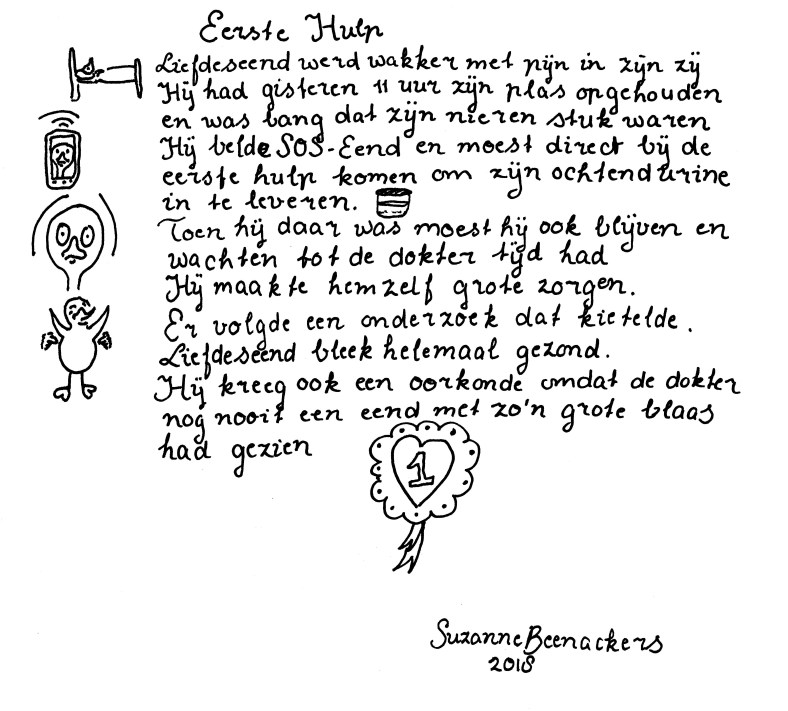 Eerste Hulp
Liefdeseend werd wakker met pijn in zijn zij
Hij had gisteren 11 uur zijn plas opgehouden
en was bang dat zijn nieren stuk waren
Hij belde SOS-Eend en moest direct bij de
eerste hulp komen om zijn ochtendurine
in te leveren.
Toen hij daar was moest hij ook blijven en
wachten tot de dokter tijd had
Hij maakte hemzelf grote zorgen.
Er volgde een onderzoek dat kietelde.
Liefdeseend bleek helemaal gezond.
Hij kreeg ook een oorkonde omdat de dokter
nog nooit een eend met zo'n grote blaas
had gezien
1
Suzanne Beenackers
2018